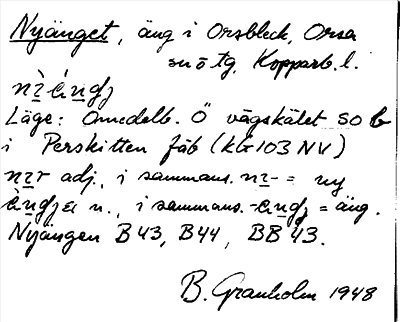 Nyänget, äng i Orsbleck, Orsa
sn ö tg. Kopparb. l.
Läge: Omedelb. Ö vägskälet SO b
i Perskitten fäb (kG103 NV)
adj., i sammans. = ny
n., i sammans. = äng.
Nyängen B43, B44, BB43.
B. Granholm 1948